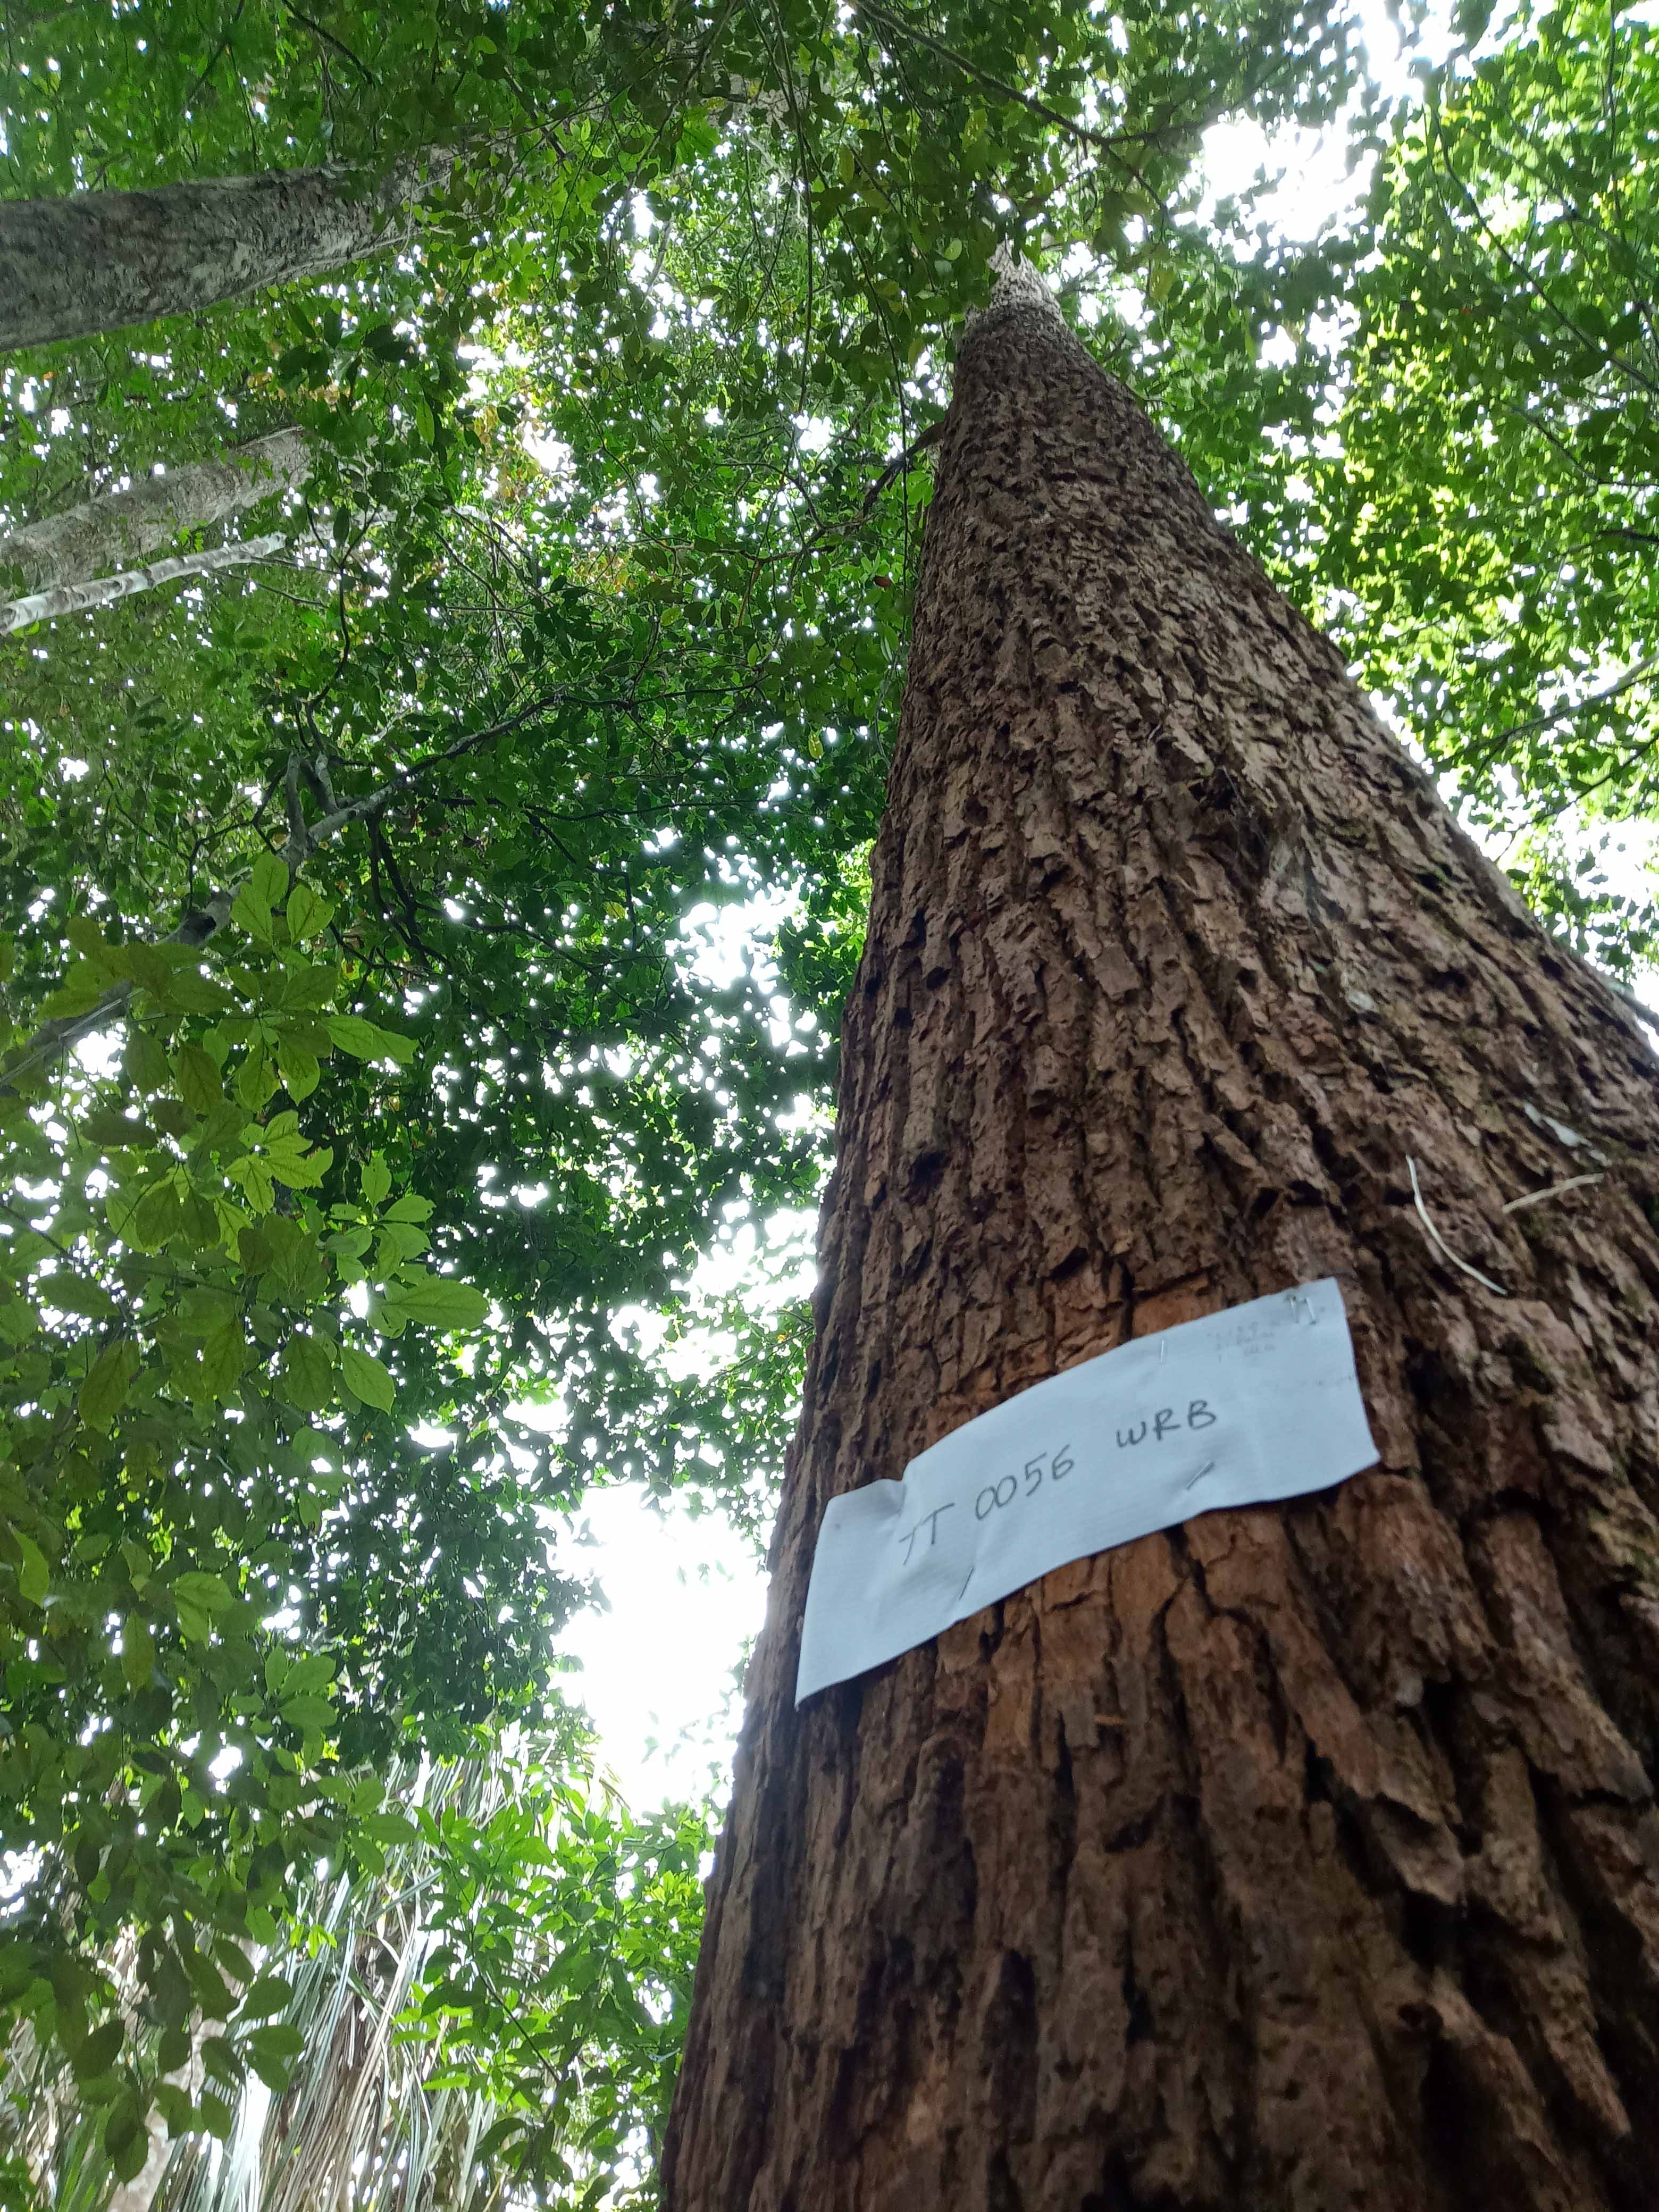 TT 0056 WRB